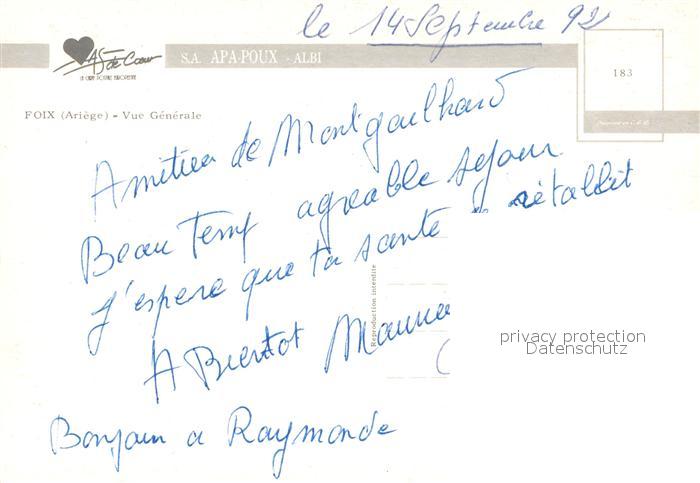 le 14 Septembre 92
AS de Cœur
LA CARTE POSTALE EUROPEENNE
S.A. APA-POUX - ALBI
183
FOIX (Ariège) - Vue Générale
Amitiés de Montgailhard
Beau Temp agreable sejour
J'espere que ta santé se rétablit
A Bientot Maurice
Bonjour a Raymonde
Reproduction interdite
privacy protection
Datenschutz